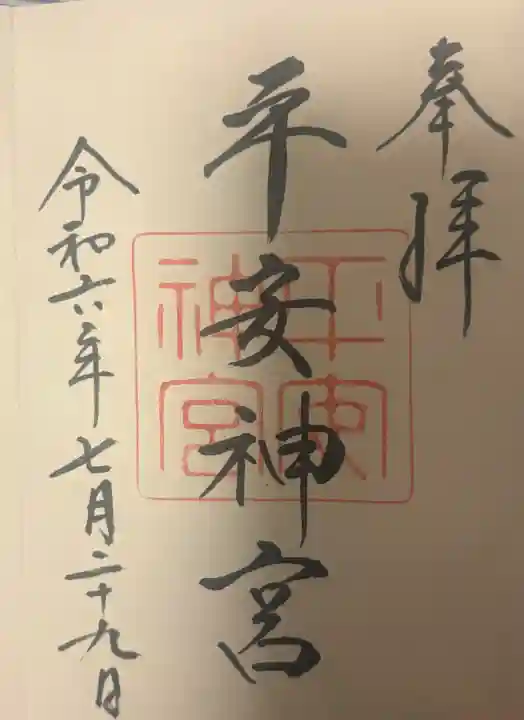 奉拝
平安神宮
平安
神宮
令和六年七月二十九日